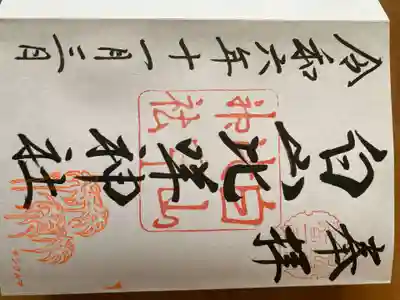 奉拝
白山比咩神社
令和六年十一月三日
白山
比咩
神社